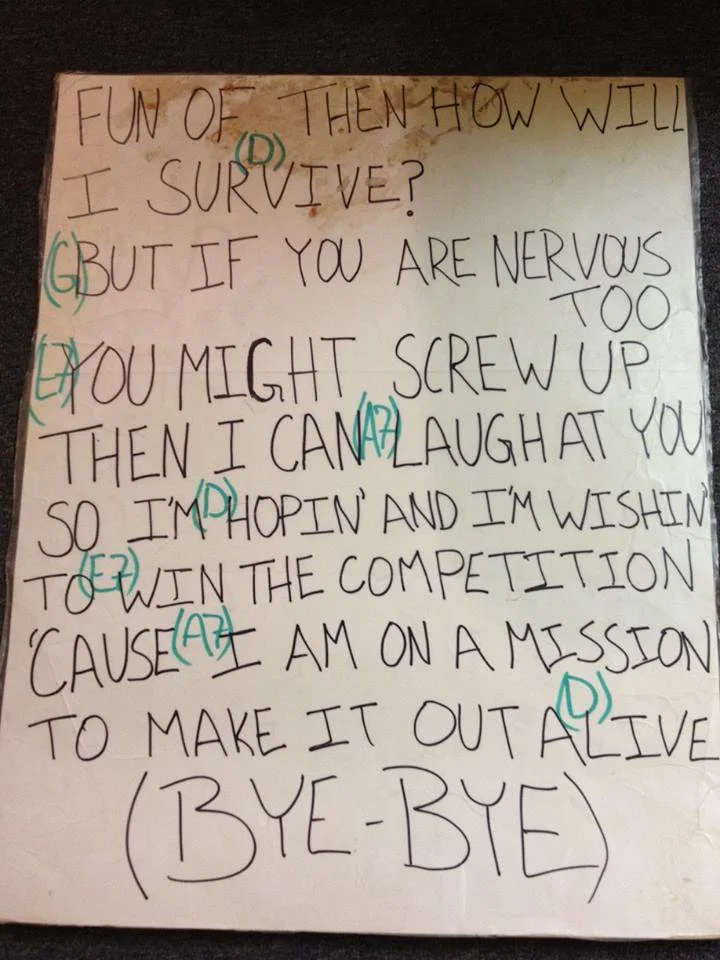 FUN OF THEN HOW WILL
I SUR(D)VIVE?
(G)BUT IF YOU ARE NERVOUS
TOO
(E7)YOU MIGHT SCREW UP
THEN I CAN(A7)LAUGH AT YOU
SO I'M(D)HOPIN' AND I'M WISHIN'
TO(E7)WIN THE COMPETITION
'CAUSE(A7)I AM ON A MISSION
TO MAKE IT OUT A(D)LIVE
(BYE-BYE)